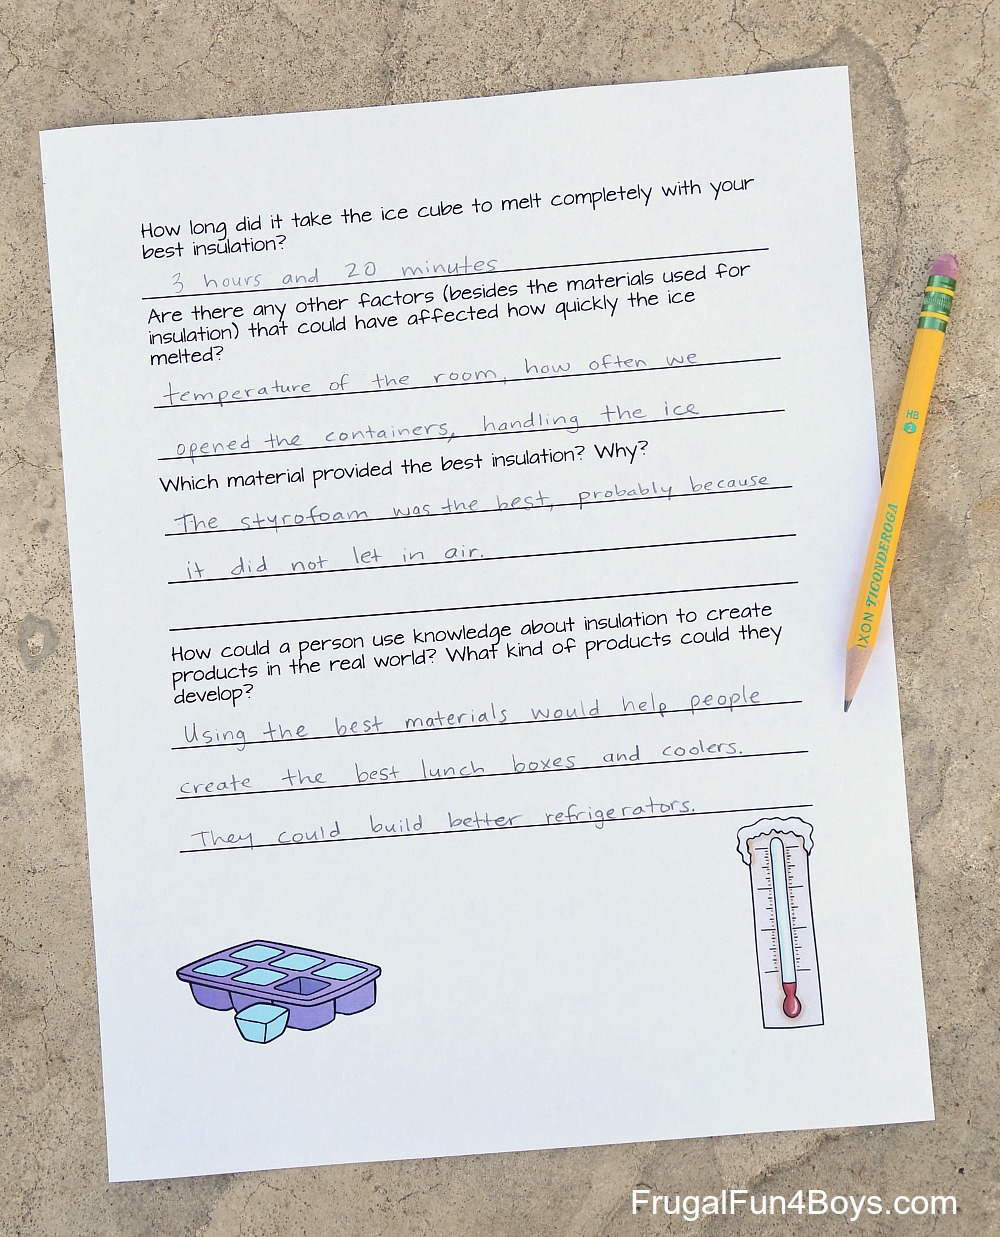 How long did it take the ice cube to melt completely with your
best insulation?
3 hours and 20 minutes
Are there any other factors (besides the materials used for
insulation) that could have affected how quickly the ice
melted?
temperature of the room, how often we
opened the containers, handling the ice
Which material provided the best insulation? Why?
The styrofoam was the best, probably because
it did not let in air.
How could a person use knowledge about insulation to create
products in the real world? What kind of products could they
develop?
Using the best materials would help people
create the best lunch boxes and coolers.
They could build better refrigerators.
HB
2
IXON TICONDEROGA
FrugalFun4Boys.com